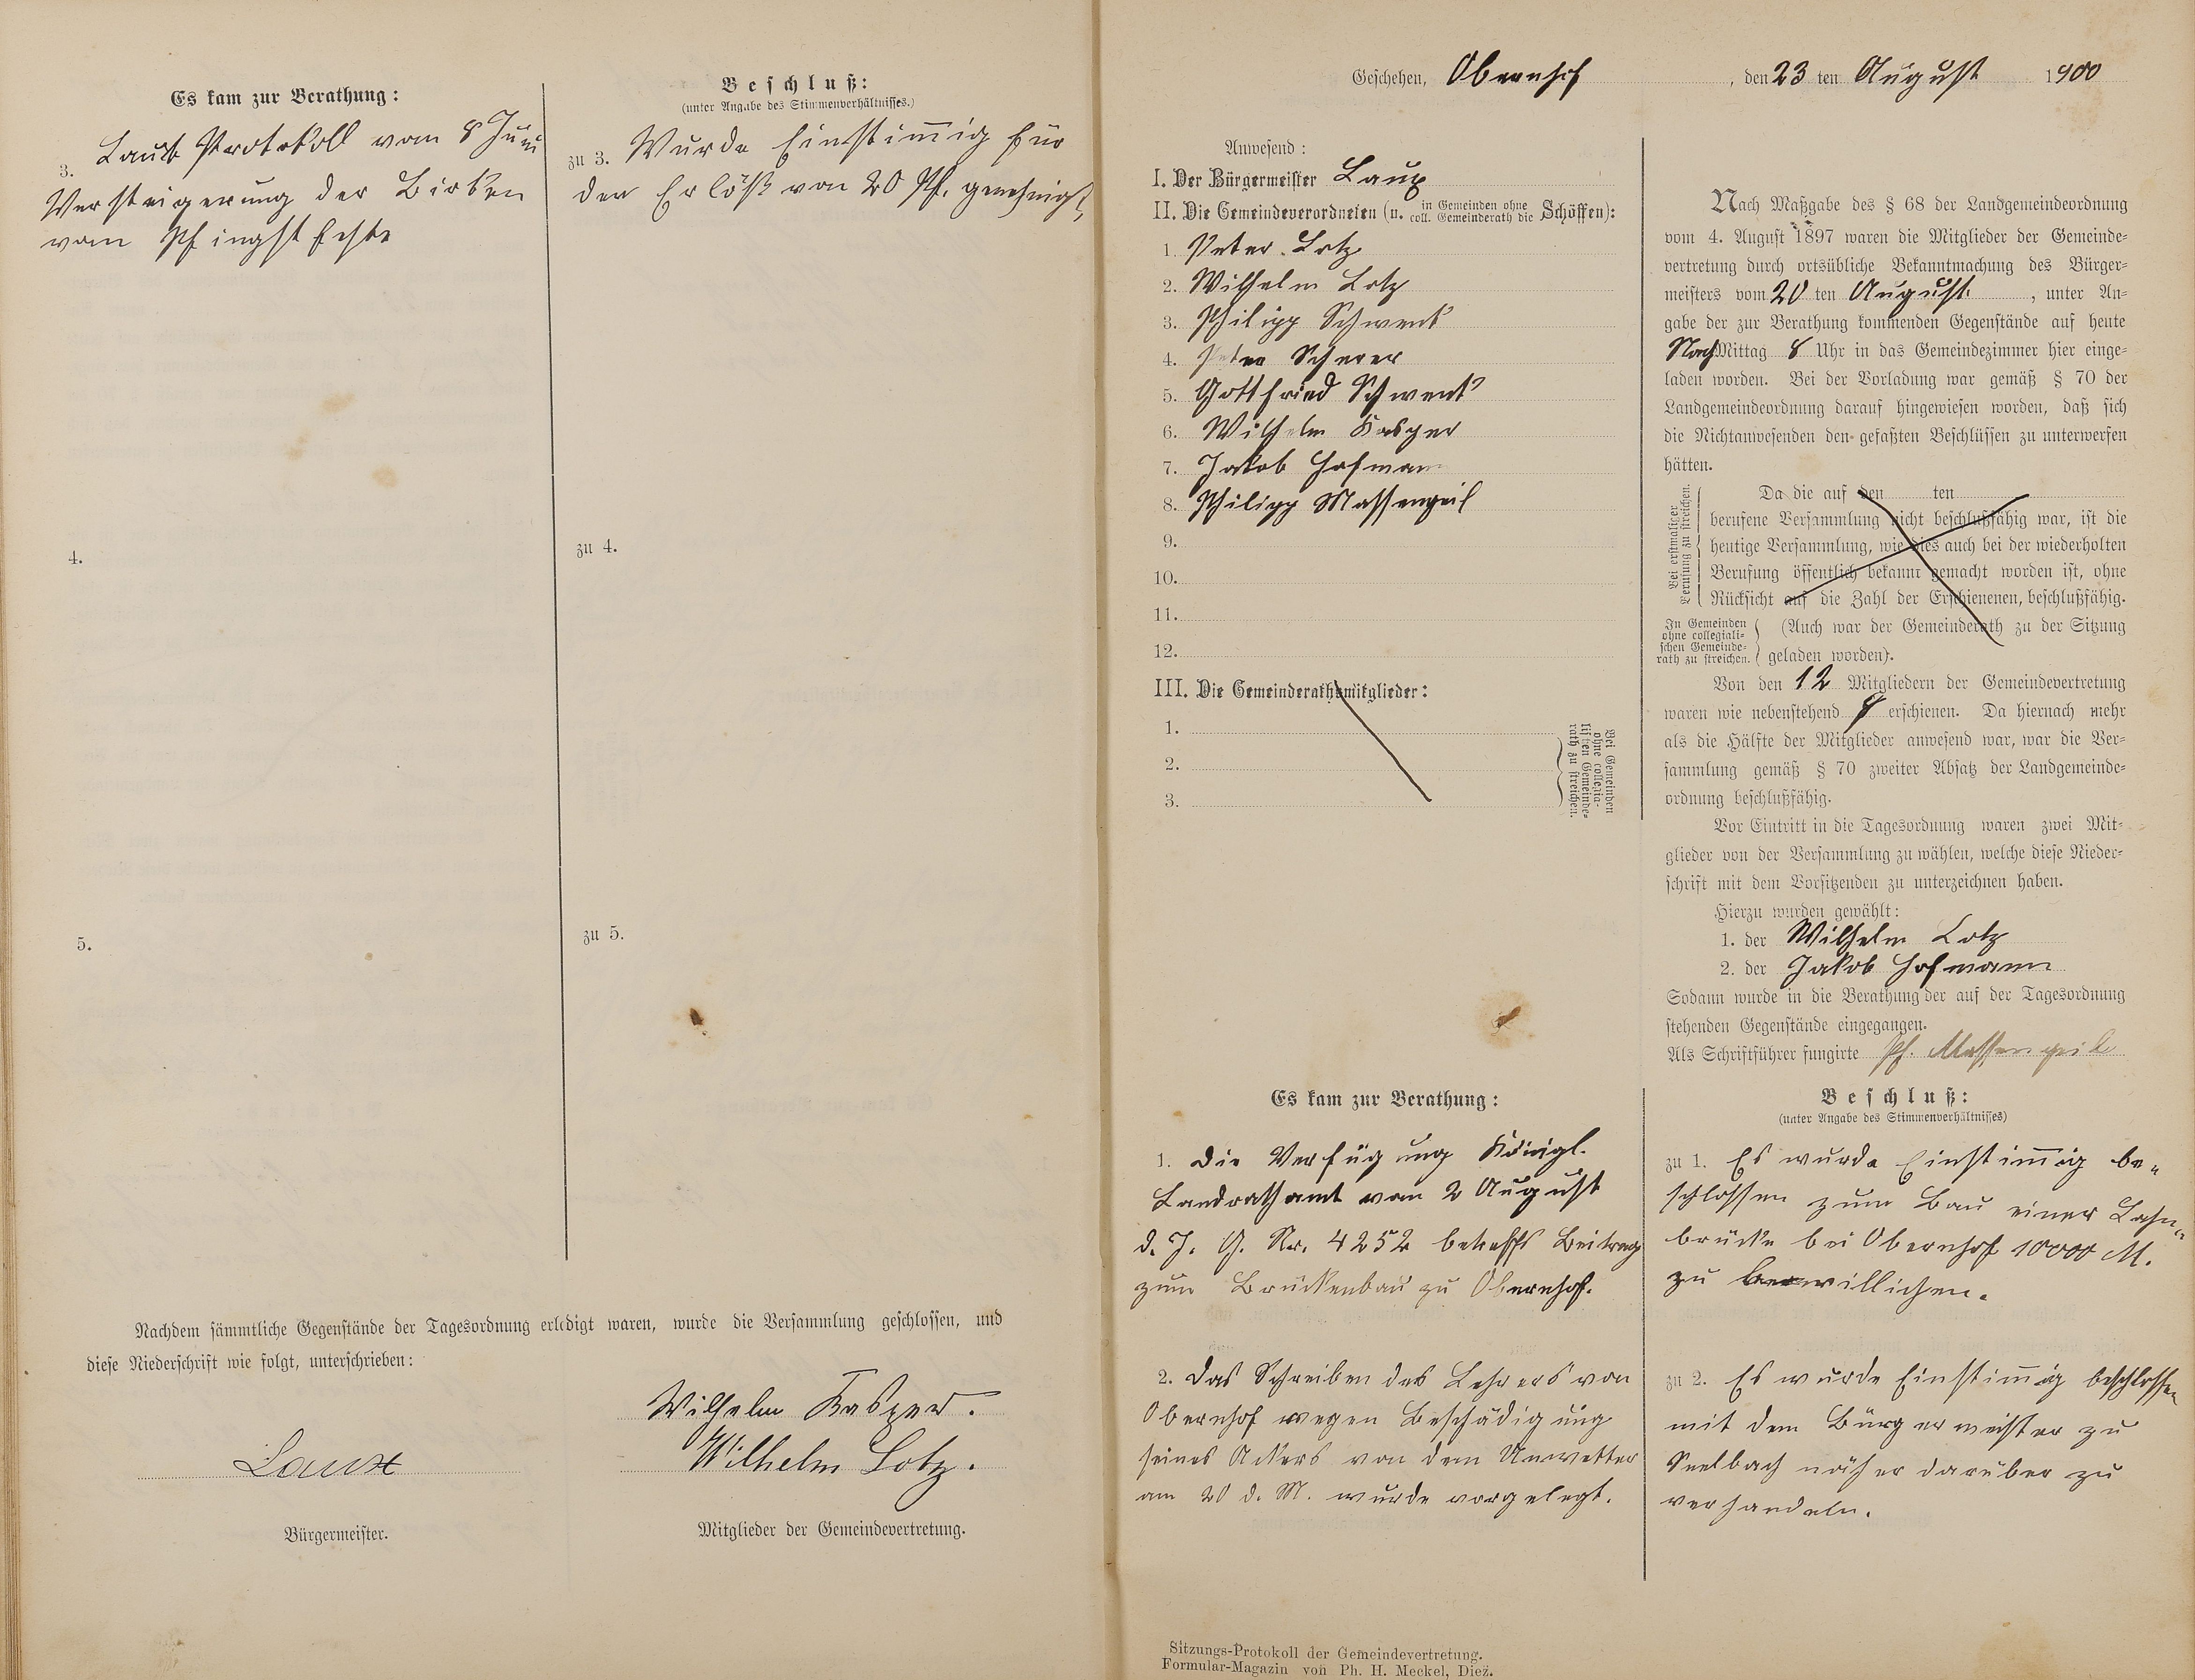 Es kam zur Berathung:
3. Laut Protokoll vom 8 Juni
Versteigerung der Birken
vom Pfingstfeste
4.
5.
Beschluß:
(unter Angabe des Stimmenverhältnisses.)
zu 3. Wurde Einstim̅ig für
den Erlöß von 20 Pf. genehmigt,
zu 4.
zu 5.
Nachdem sämmtliche Gegenstände der Tagesordnung erledigt waren, wurde die Versammlung geschlossen, und
diese Niederschrift wie folgt, unterschrieben:
Wilhelm Kasper.
Laux
Wilhelm Lotz.
Bürgermeister.
Mitglieder der Gemeindevertretung.
Geschehen, Obernhof, den 23 ten August 1900
Anwesend:
I. Der Bürgermeister Laux
II. Die Gemeindeverordneten (u. in Gemeinden ohne coll. Gemeinderath die Schöffen):
1. Peter Lotz
2. Wilhelm Lotz
3. Philipp Schwenk
4. Peter Scherer
5. Gottfried Schwenk
6. Wilhelm Kasper
7. Jakob Hofmann
8. Philipp Massengeil
9.
10.
11.
12.
III. Die Gemeinderathsmitglieder:
1.
2.
3.
Bei Gemeinden
ohne collegia-
lischen Gemeinde-
rath zu streichen.
Nach Maßgabe des § 68 der Landgemeindeordnung
vom 4. August 1897 waren die Mitglieder der Gemeinde-
vertretung durch ortsübliche Bekanntmachung des Bürger-
meisters vom 20 ten August, unter An-
gabe der zur Berathung kommenden Gegenstände auf heute
NachMittag 8 Uhr in das Gemeindezimmer hier einge-
laden worden. Bei der Vorladung war gemäß § 70 der
Landgemeindeordnung darauf hingewiesen worden, daß sich
die Nichtanwesenden den gefaßten Beschlüssen zu unterwerfen
hätten.
Bei erstmaliger
Berufung zu streichen.
Da die auf den ten
berufene Versammlung nicht beschlußfähig war, ist die
heutige Versammlung, wie dies auch bei der wiederholten
Berufung öffentlich bekannt gemacht worden ist, ohne
Rücksicht auf die Zahl der Erschienenen, beschlußfähig.
In Gemeinden
ohne collegiali-
schen Gemeinde-
rath zu streichen.
(Auch war der Gemeinderath zu der Sitzung
geladen worden).
Von den 12 Mitgliedern der Gemeindevertretung
waren wie nebenstehend 8 erschienen. Da hiernach mehr
als die Hälfte der Mitglieder anwesend war, war die Ver-
sammlung gemäß § 70 zweiter Absatz der Landgemeinde-
ordnung beschlußfähig.
Vor Eintritt in die Tagesordnung waren zwei Mit-
glieder von der Versammlung zu wählen, welche diese Nieder-
schrift mit dem Vorsitzenden zu unterzeichnen haben.
Hierzu wurden gewählt:
1. der Wilhelm Lotz
2. der Jakob Hofmann
Sodann wurde in die Berathung der auf der Tagesordnung
stehenden Gegenstände eingegangen.
Als Schriftführer fungirte Ph. Massengeil
Es kam zur Berathung:
1. Die Verfügung Königl.
Landrathsamt vom 2 August
d. J. G. Nr. 4252 betreffs Beitrag
zum Brückenbau zu Obernhof.
2. Das Schreiben des Lehrers von
Obernhof wegen Beschädigung
seines Ackers von dem Unwetter
am 20 d. M. wurde vorgelegt.
Beschluß:
(unter Angabe des Stimmenverhältnisses)
zu 1. Es wurde Einstim̅ig be-
schlossen zum Bau einer Lahn-
brücke bei Obernhof 10000 M.
zu bewillichen.
zu 2. Es wurde Einstim̅ig beschlossen
mit dem Bürgermeister zu
Seelbach näher darüber zu
verhandeln.
Sitzungs-Protokoll der Gemeindevertretung.
Formular-Magazin von Ph. H. Meckel, Diez.